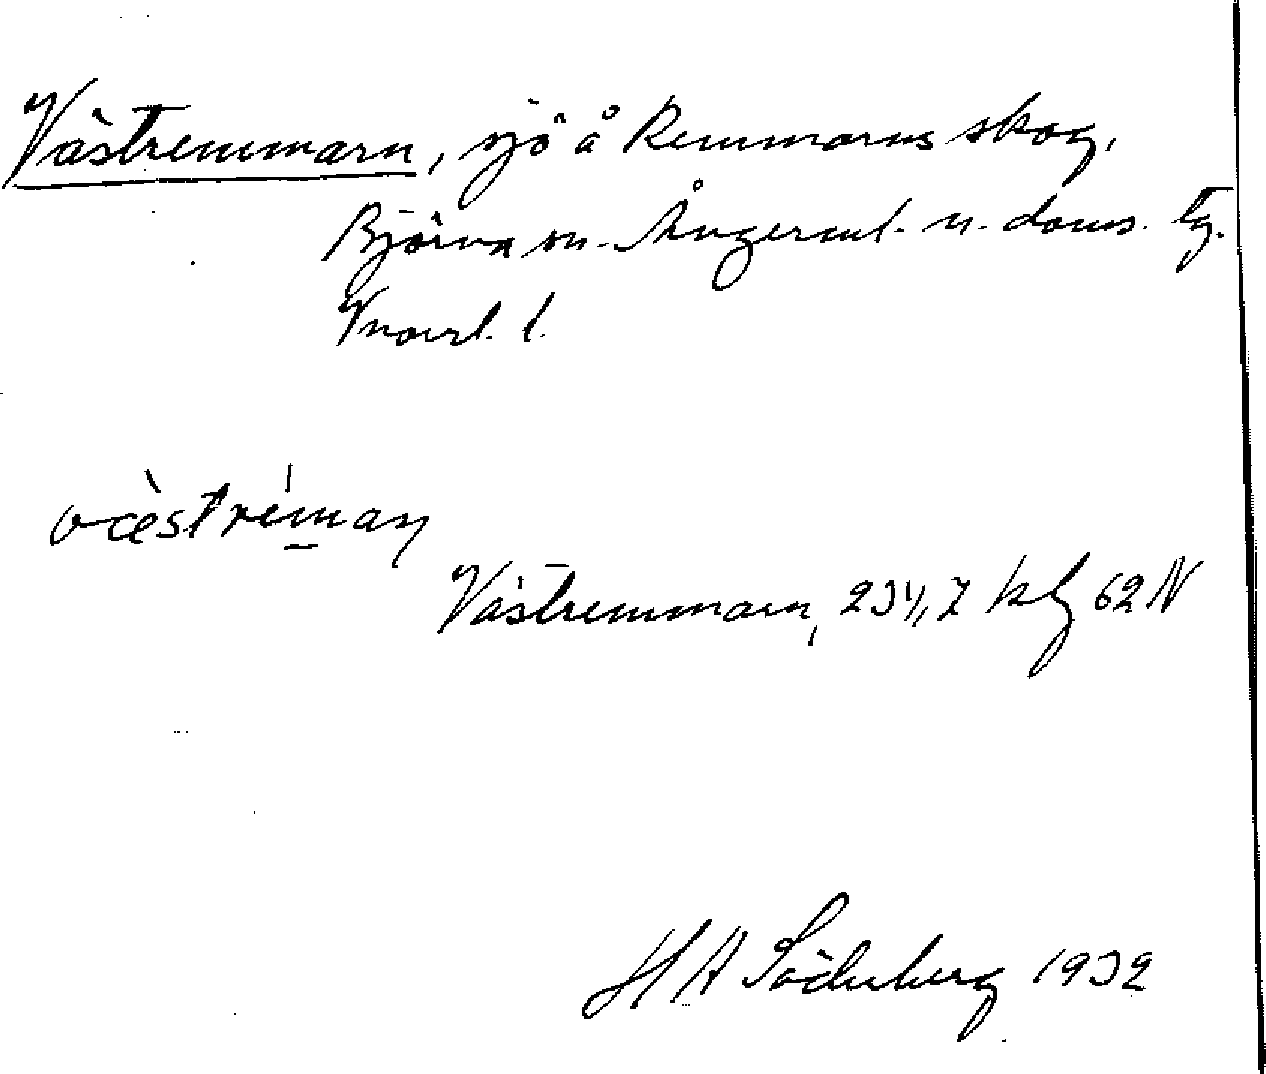 Västremmarn, sjö å Remmarns skog,
Björna sn. Ångerml. n. doms. tg.
Vnorrl. l.
væ̀stréman
Västremmarn, 231,7 kbl 62 N
H A Söderberg 1932